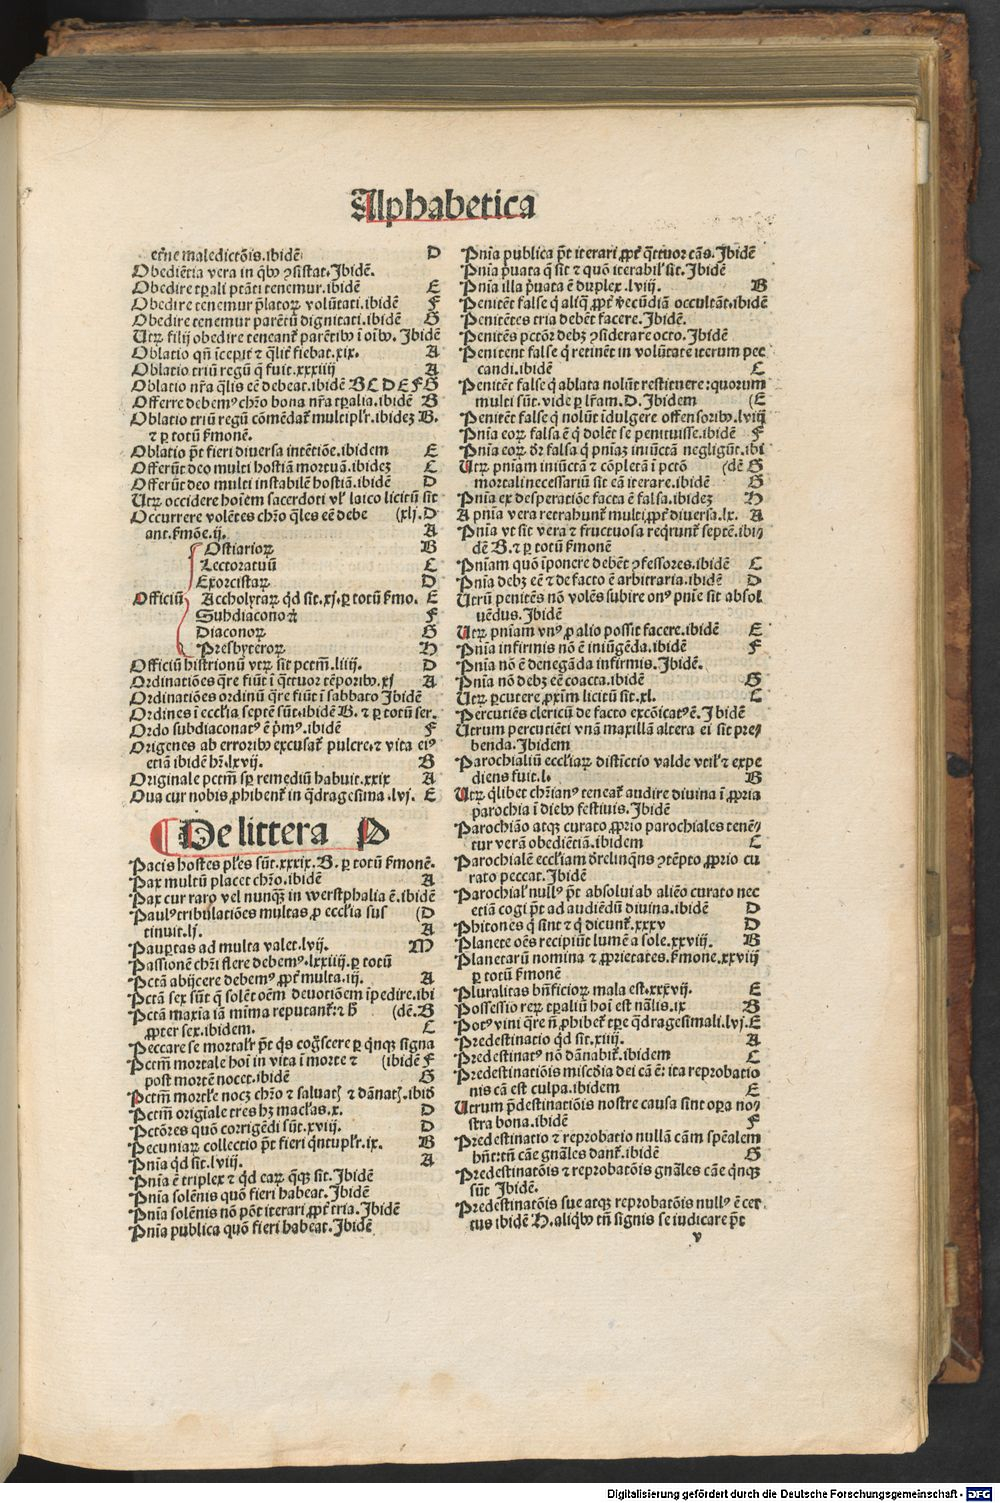 Alphabetica
et̃ne maledictõis.ibidẽ D
Obediẽtia vera in qͥbꝰ ꝯsistat.Ibidẽ.
Obedire tꝑali ptãti tenemur.ibidẽ E
Obedire tenemur p̃latoꝝ volũtati.ibidẽ F
Obedire tenemur parẽtũ dignitati.ibidẽ G
Utꝝ filij obedire teneant̃ parẽtibꝰ ĩ oĩbꝰ. Ibidẽ
Oblatio qñ ĩceꝑit ⁊ q̃lit̃ fiebat.xix. A
Oblatio triũ regũ q̃ fuit.xxxiiij A
Oblatio nr̃a q̃lis eẽ debeat.ibidẽ B C D E F G
Offerre debemꝰ chr̃o bona nr̃a tꝑalia.ibidẽ B
Oblatio triũ regũ cõmẽdat̃ multiplr̃.ibideꝫ B.
⁊ ꝑ totũ ẜmonẽ.
Oblatio p̃t fieri diversa intẽtiõe.ibidem E
Offerũt deo multi hostiã mortuã.ibideꝫ C
Offerũt deo multi instabilẽ hostiã.ibidẽ D
Utꝝ occidere hoĩem sacerdoti vl̃ laico licitũ sit
Occurrere volẽtes chr̃o q̃les eẽ debe (xlj.D
ant.ẜmõe.ij. A
Ostiarioꝝ B
Lectoratuũ C
Exorcistaꝝ D
Officiũ Accholytaꝝ qͥd sit.xj.ꝑ totũ ẜmo. E
Subdiaconoꝝ F
Diaconoꝝ G
Presbyteroꝝ H
Officiũ histrionũ vtꝝ sit pctm̃.liiij. D
Ordinatiões q̃re fiũt ĩ q̃ttuor tẽporibꝰ.xj A
Ordinatiões ordinũ q̃re fiũt ĩ sabbato Ibidẽ
Ordines ĩ eccl̃ia septẽ sũt.ibidẽ B. ⁊ ꝑ totũ ser.
Ordo subdiaconatꝰ ẽ pͥmꝰ.ibidẽ F
Origenes ab erroribꝰ excusat̃ pulcre.⁊ vita eiꝰ
etiã ibidẽ hr̃.lxvij. B
Originale pctm̃ sꝑ remediũ habuit.xxix A
Ova cur nobis ꝓhibent̃ in q̃dragesima.lvj. E
De littera P
Pacis hostes pl̃es sũt.xxxix.B. ꝑ totũ ẜmonẽ.
Pax multũ placet chr̃o.ibidẽ A
Pax cur raro vel nunqͣꝫ in westphalia ẽ.ibidẽ
Paulꝰ tribulatiões multas ꝓ eccl̃ia sus (D
tinuit.lj. A
Pauꝑtas ad multa valet.lvij. M
Passionẽ chr̃i flere debemꝰ.lxxiiij.ꝑ totũ
Pctã abijcere debemꝰ ꝓpt̃ multa.iij. A
Pctã sex sũt q̃ solẽt oẽm devotiõem ĩpedire.ibi
Pctã maxĩa iã mima reputant̃:⁊ h̃ (dẽ.B
ꝓpter sex.ibidem. C
Peccare se mortalr̃ p̃t qͥs cog̃scere ꝑ qͥnqꝫ signa
Pctm̃ mortale hoĩ in vita ĩ morte ⁊ (ibidẽ F
post mortẽ nocet.ibidẽ G
Pctm̃ mortl̃e nocꝫ chr̃o ⁊ salvatꝫ ⁊ dãnatꝫ.ibid̃
Pctm̃ origĩale tres hꝫ macl̃as.x. D
Pctõres quõ corrigẽdi sũt.xviij. D
Pecuniaꝝ collectio p̃t fieri qͥntuplr̃.ix. B
Pnĩa qͥd sit.lviij. A
Pnĩa ẽ triplex ⁊ qͥd eaꝝ q̃qꝫ sit.Ibidẽ
Pnĩa solẽnis quõ fieri habeat.Ibidẽ
Pnĩa solẽnis nõ põt iterari ꝓpt̃ tria.Ibidẽ
Pnĩa publica quõ fieri habeat.Ibidẽ
Pnĩa publica p̃t iterari ꝓpt̃ q̃ttuor cãs.Ibidẽ
Pnĩa pͥvata q̃ sit ⁊ quõ iterabil̃ sit.Ibidẽ
Pnĩa illa pͥvata ẽ duplex.lviij. B
Penitẽt false qͥ aliq̃ ꝓpt̃ vecũdiã occultãt.ibidẽ
Penitẽtes tria debẽt facere.Ibidẽ.
Penitẽs pctõr debꝫ ꝯsiderare octo.Ibidẽ
Penitent false qͥ retinẽt in volũtate iterum pec
candi.ibidẽ C
Penitẽt false qͥ ablata nolũt restituere:quorum
multi sũt.vide ꝑ lr̃am.D.Ibidem (E
Penitẽt false qͥ nolũt ĩdulgere offensoribꝰ.lviij
Pnĩa eoꝝ falsa ẽ qͥ dolẽt se penituisse.ibidẽ F
Pnĩa eoꝝ dr̃ falsa qͥ pnĩaꝫ iniũctã negligũt.ibi
Utꝝ pnĩam iniũctã ⁊ cõpletã ĩ pctõ (dẽ G
mortali necessariũ sit eã iterare.ibidẽ G
Pnĩa ex desperatiõe facta ẽ falsa.ibideꝫ H
A pnĩa vera retrahunt̃ multi ꝓpt̃ diversa.lx. A
Pnĩa vt sit vera ⁊ fructuosa reqͥrunt̃ septẽ.ibi⸗
dẽ B.⁊ ꝑ totũ ẜmonẽ
Pnĩam quõ ĩponere debẽt ꝯfessores.ibidẽ C
Pnĩa debꝫ eẽ ⁊ de facto ẽ arbitraria.ibidẽ D
Utrũ penitẽs nõ volẽs subire onꝰ pnĩe sit absol
uẽdus.Ibidẽ
Utꝝ pnĩam vnꝰ ꝓ alio possit facere.ibidẽ E
Pnĩa infirmis nõ ẽ iniũgẽda.ibidẽ F
Pnĩa nõ ẽ denegãda infirmis.Ibidẽ.
Pnĩa nõ debꝫ eẽ coacta.ibidẽ G
Utꝝ ꝑcutere ꝓxĩm licitũ sit.xl. C
Percutiẽs clericũ de facto excõicatꝰ ẽ.Ibidẽ
Utrum percutiẽti vnã maxillã altera ei sit pre⸗
benda.Ibidem
Parochialiũ eccl̃iaꝝ distĩctio valde vtil̃ ⁊ expe
diens fuit.l. B
Utꝝ qͥlibet chr̃ianꝰ teneat̃ audire divina ĩ ꝓpria
parochia ĩ diebꝰ festivis.Ibidẽ
Parochião atqꝫ curato ꝓprio parochiales tenẽ⸗
tur verã obediẽtiã.ibidem C
Parochialẽ eccl̃iam d̃relinq̃ns ꝯtẽpto ꝓprio cu
rato peccat.Ibidẽ
Parochial̃ nullꝰ p̃t absolvi ab aliẽo curato nec
etiã cogi p̃t ad audiẽdũ divina.ibidẽ D
Phitones qͥ sint ⁊ qͥ dicunt̃.xxxv D
Planete oẽs recipiũt lumẽ a sole.xxviij. B
Planetarũ nomina ⁊ ꝓprietates.ẜmone.xxviij
ꝑ totũ ẜmonẽ
Pluralitas bñficioꝝ mala est.xxxvij. E
Possessio reꝝ tꝑaliũ hoĩ est nãlis.ix B
Potꝰ vini q̃re ñ ꝓhibet̃ tꝑe q̃dragesimali.lvj.E
Predestinatio qͥd sit.xiiij. A
Predestinatꝰ nõ dãnabit̃.ibidem C
Predestinatiõis misc̃dia dei cã ẽ: ita reprobatio
nis cã est culpa.ibidem E
Utrum p̃destinatiõis nostre causa sint oꝑa no⸗
stra bona.ibidẽ F
Predestinatio ⁊ reprobatio nullã cãm spẽalem
hñt:tñ cãe gnãles dant̃.ibidẽ G
Predestinatõis ⁊ reprobatõis gnãles cãe qͥnqꝫ
sũt Ibidẽ.
Predestinatõis sue atqꝫ reprobatõis nullꝰ ẽ cer
tus ibidẽ H.aliqͥbꝰ tñ signis se iudicare p̃t
v
Digitalisierung gefördert durch die Deutsche Forschungsgemeinschaft - DFG